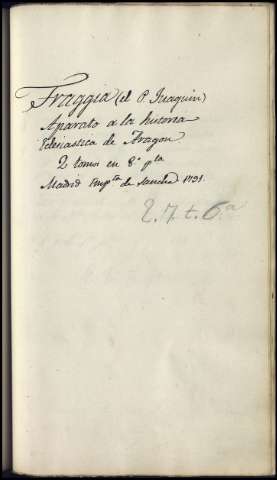 Traggia (el P. Juaquin)
Aparato a la historia
Eclesiastica de Aragon
2 tomos en 8º pta
Madrid Impta de Sancha 1791.
2. 7. t. 6ª